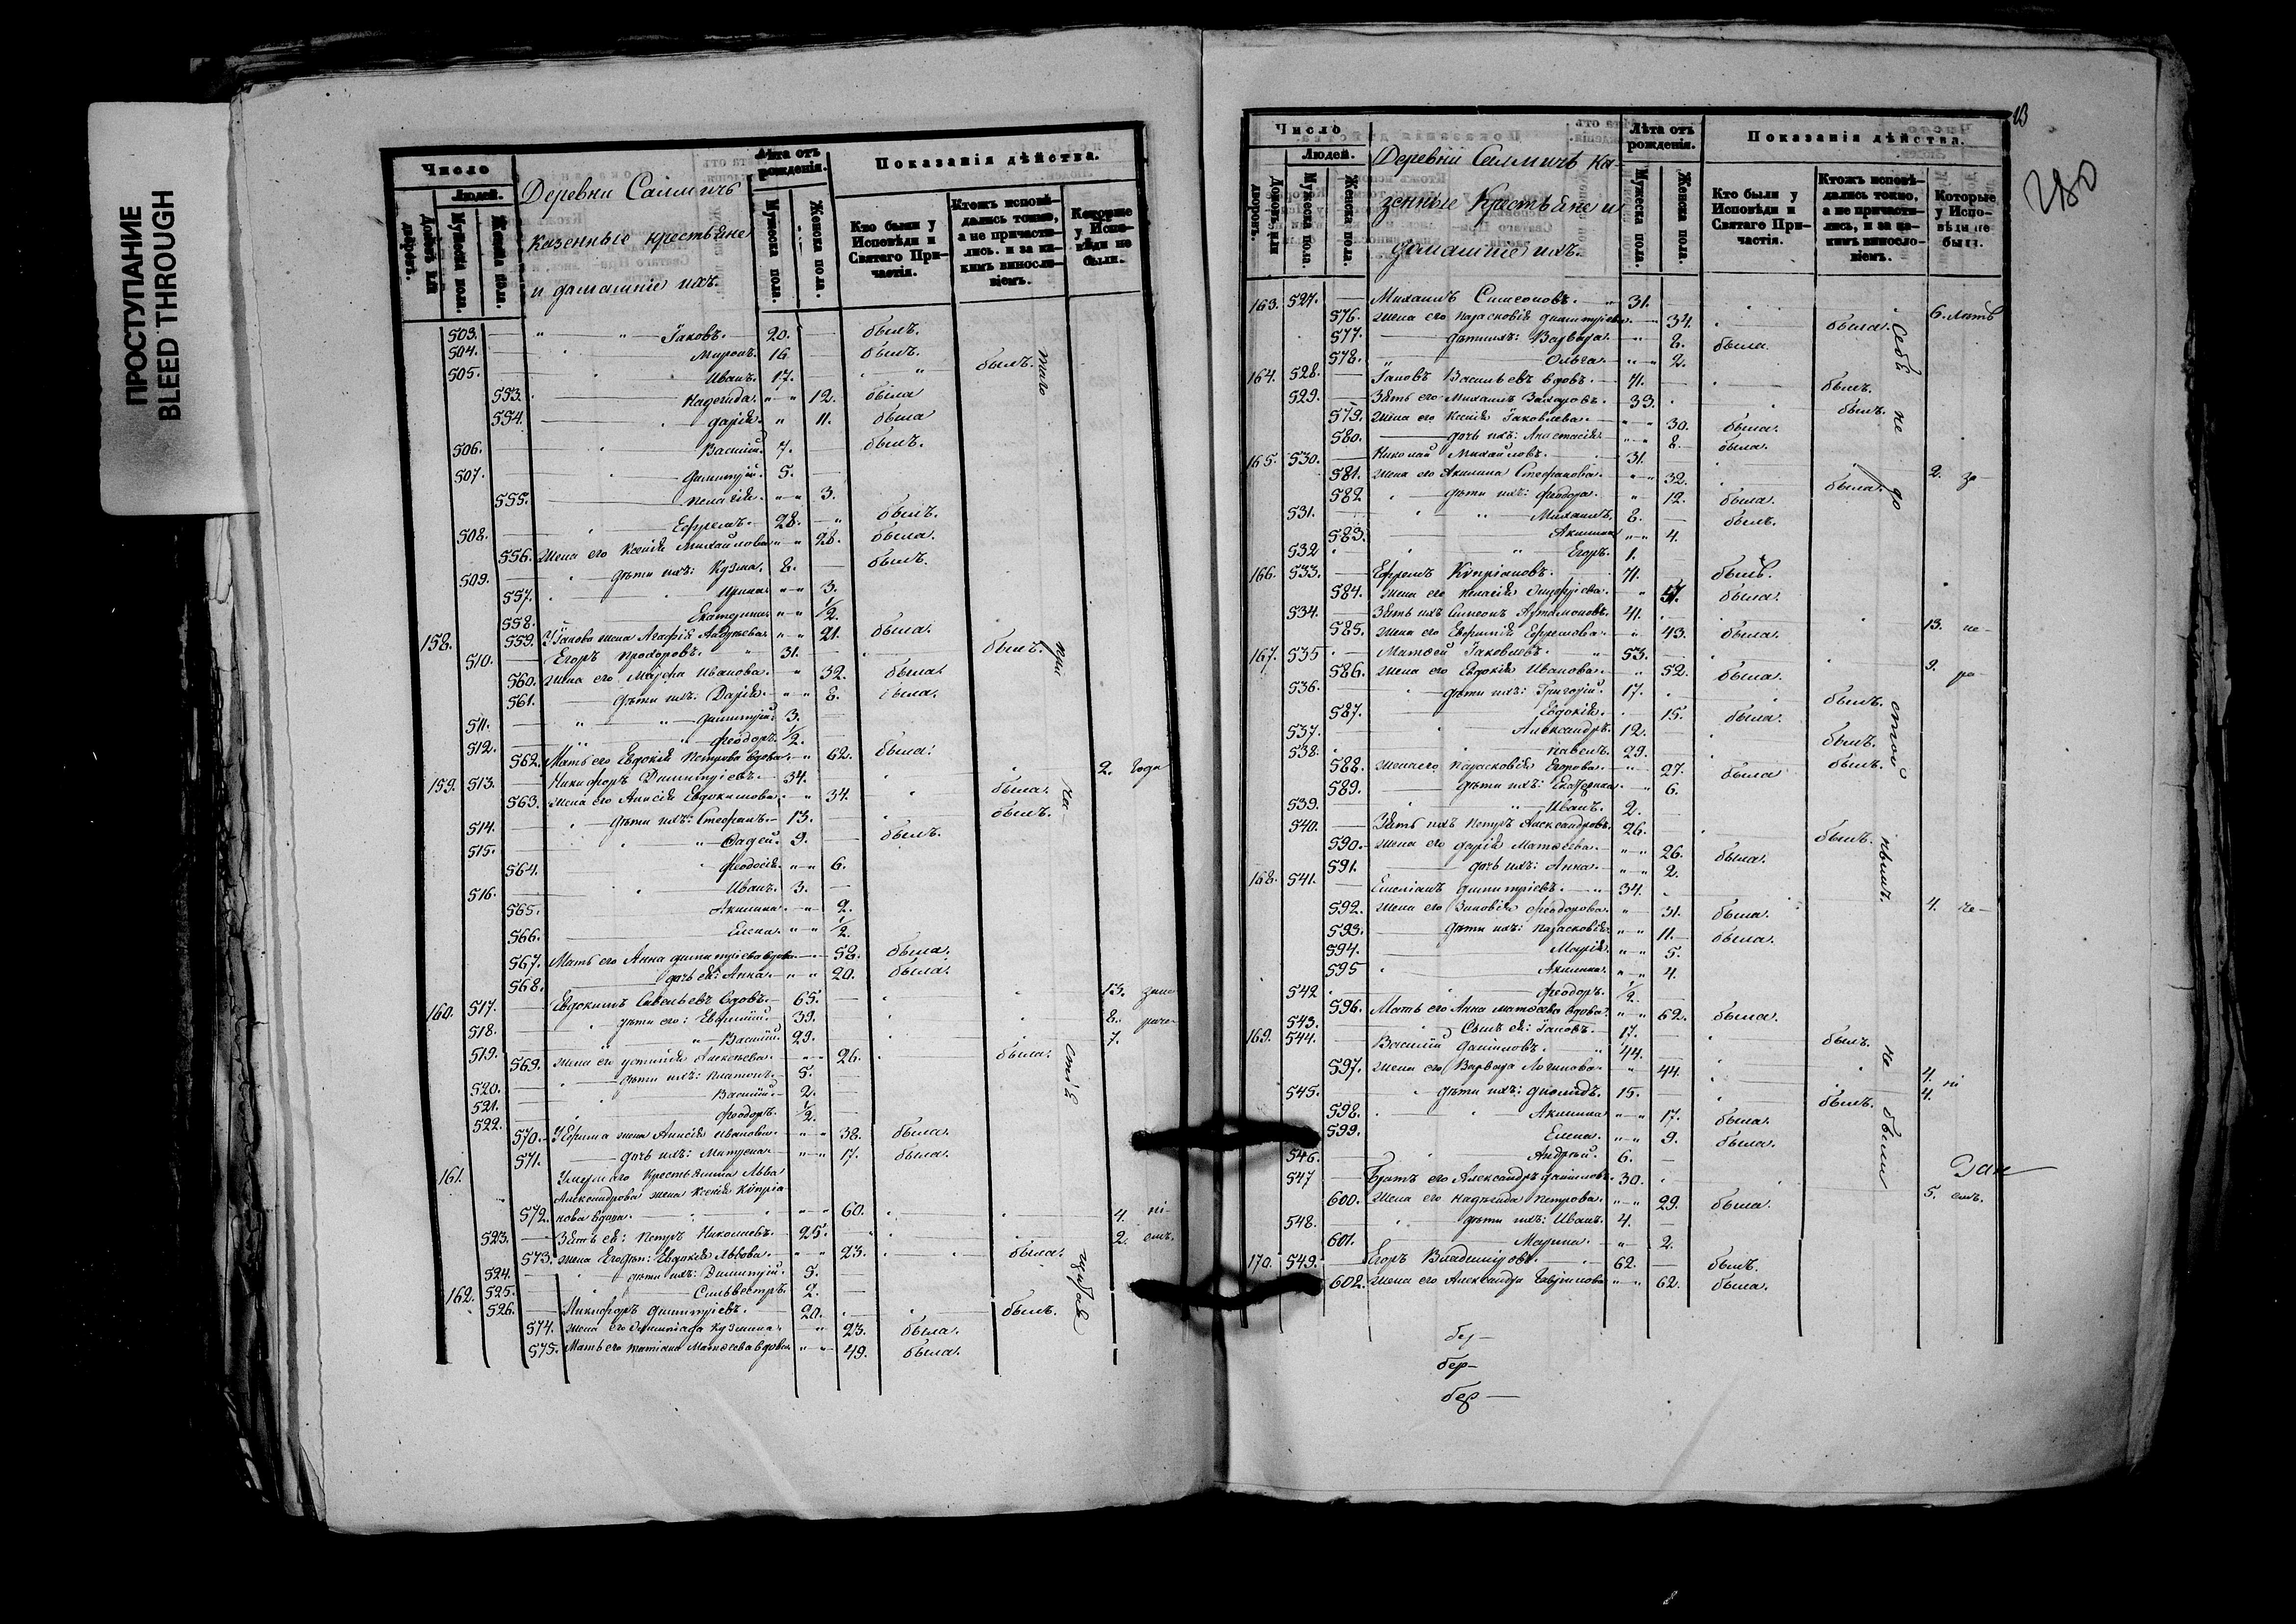 ПРОСТУПАНИЕ
BLEED THROUGH
Число
Людей.
Домовъ или дворовъ.
Мужеска пола.
Женска пола.
Деревни Саллмичъ
казенные крестьяне
и домашніе ихъ.
Лѣта отъ рожденія.
Мужеска пола.
Женска пола.
Показанія дѣйства.
Кто были у Исповѣди и Святаго Причастія.
Ктожъ исповѣдались токмо, а не причастились, и за какимъ винословіемъ.
Которые у Исповѣди не были.
503. Іаковъ. 20. былъ.
504. Миронъ. 16. былъ.
505. Иванъ. 17. былъ.
553. Надежда. 12. была
554. Дарія. 11. была
506. Василій. 7. былъ.
507. Димитрій. 5.
555. Пелагія. 3.
508. Ефремъ. 28. былъ.
556. Жена его Ксенія Михайлова 28. была.
509. дѣти ихъ: Кузма. 8. былъ.
557. Ирина. 3.
558. Екатерина. 1/2.
559. У Іакова жена Агафія Андреева. 21. была.
158. 510. Егоръ Прохоровъ. 31. былъ.
560. Жена его Марфа Иванова. 32. была.
561. Дѣти ихъ: Дарія. 8. была.
511. Димитрій. 3.
512. Феодоръ. 1/2.
562. Мать его Евдокія Петрова вдова. 62. была.
159. 513. Никифоръ Димитріевъ. 34. 2. года
563. Жена его Анисія Евдокимова. 34. была.
514. Дѣти ихъ: Стефанъ. 13. былъ.
515. Фадей. 9. былъ.
564. Феодосія. 6.
516. Иванъ. 3.
565. Акилина. 2.
566. Елена. 1/2.
567. Мать его Анна Димитріева вдова. 58. была.
568. дочь ея: Анна. 20. была.
160. 517. Евдокимъ Савельевъ вдовъ. 65. 13.
518. дѣти его: Евфимій. 39. 8.
519. Василій. 29. 7.
569. жена его Устинія Алексеева. 26. была.
520. дѣти ихъ: Платонъ. 5.
521. Василій. 2.
522. Феодоръ. 1/2.
570. У Ефима жена Анисія Иванова. 38. была.
571. дочь ихъ: Матрена. 17. была.
161. Умершаго крестьянина Льва
Александрова жена Ксенія Кипріа
572. нова вдова. 60. 4.
523. Зять ея: Петръ Николаевъ. 25. 2.
573. жена его: Евдокія Львова. 23. была.
524. дѣти ихъ: Димитрій. 5.
525. Сильвестръ. 2.
162. 526. Никифоръ Димитріевъ. 20. былъ.
574. жена его Олимпіада Кузмина. 23. была.
575. Мать его Татіана Матѳеева вдова. 49. была.
280
Число
Людей.
Домовъ или дворовъ.
Мужеска пола.
Женска пола.
Деревни Саллмичъ Ка-
зенные Крестьяне и
домашніе ихъ.
Лѣта отъ рожденія.
Мужеска пола.
Женска пола.
Показанія дѣйства.
Кто были у Исповѣди и Святаго Причастія.
Ктожъ исповѣдались токмо, а не причастились, и за какимъ винословіемъ.
Которые у Исповѣди не были.
163. 527. Михаилъ Симеоновъ. 31. 6. лѣтъ
576. Жена его Парасковія Димитріева. 34. была.
577. дѣти ихъ: Варвара. 8. была
578. Ольга. 2.
164. 528. Іаковъ Васильевъ вдовъ. 71. былъ.
529. Зять его Михаилъ Захаровъ. 33. былъ.
579. Жена его Ксенія Іаковлева. 30. была.
580. дочь ихъ: Анастасія. 8. была.
165. 530. Николай Михайловъ. 31. 2.
581. Жена его Акилина Стефанова. 32. была.
582 дѣти ихъ: Феодора. 12. была.
531. Михаилъ. 8. былъ.
583. Акилина 4.
532 Егоръ. 1.
166. 533. Ефремъ Кипріановъ. 71. былъ.
584. Жена его Пелагія Онуфріева. была.
534. Зять ихъ Симеонъ Артамоновъ. 41. 13.
585. Жена его Евфимія Ефремова. 43. была.
167. 535 Матѳей Іаковлевъ. 53. 9.
586. Жена его Евдокія Иванова. 52. была.
536. дѣти ихъ: Григорій. 17. былъ.
587. Евдокія. 15. была.
537. Александръ. 12. былъ.
538. Павелъ. 29. былъ.
588. жена его Парасковія Егорова. 27. была
589. дѣти ихъ: Екатерина. 6.
539. Иванъ. 2.
540. Зять ихъ Петръ Александровъ. 26. былъ.
590. Жена его Дарія Матѳеева. 26. была.
591. дочь ихъ: Анна. 2.
168. 541. Емеліанъ Димитріевъ. 34. 4.
592. Жена его Зиновія Феодорова. 31. была.
593. дѣти ихъ: Парасковія. 11. была.
594. Марія. 5.
595 Акилина. 4.
542 Феодоръ. 1/2.
596. Мать его Анна Матѳеева вдова. 62. была.
543. Сынъ ея: Іаковъ. 17. былъ.
169. 544. Василій Даниловъ. 44. 4.
597. Жена его Варвара Логинова. 44. 4.
545. дѣти ихъ: Діомидъ. 15. былъ.
598. Акилина 17. была.
599. Елена. 9. была.
546. Андрей. 6.
547 Братъ его Александръ Даниловъ. 30. 5.
600. Жена его Надежда Петрова. 29. была.
548. дѣти ихъ: Иванъ. 4.
601. Марина. 2.
170. 549. Егоръ Владиміровъ. 62. былъ.
602. Жена его Александра Гавріилова 62. была.